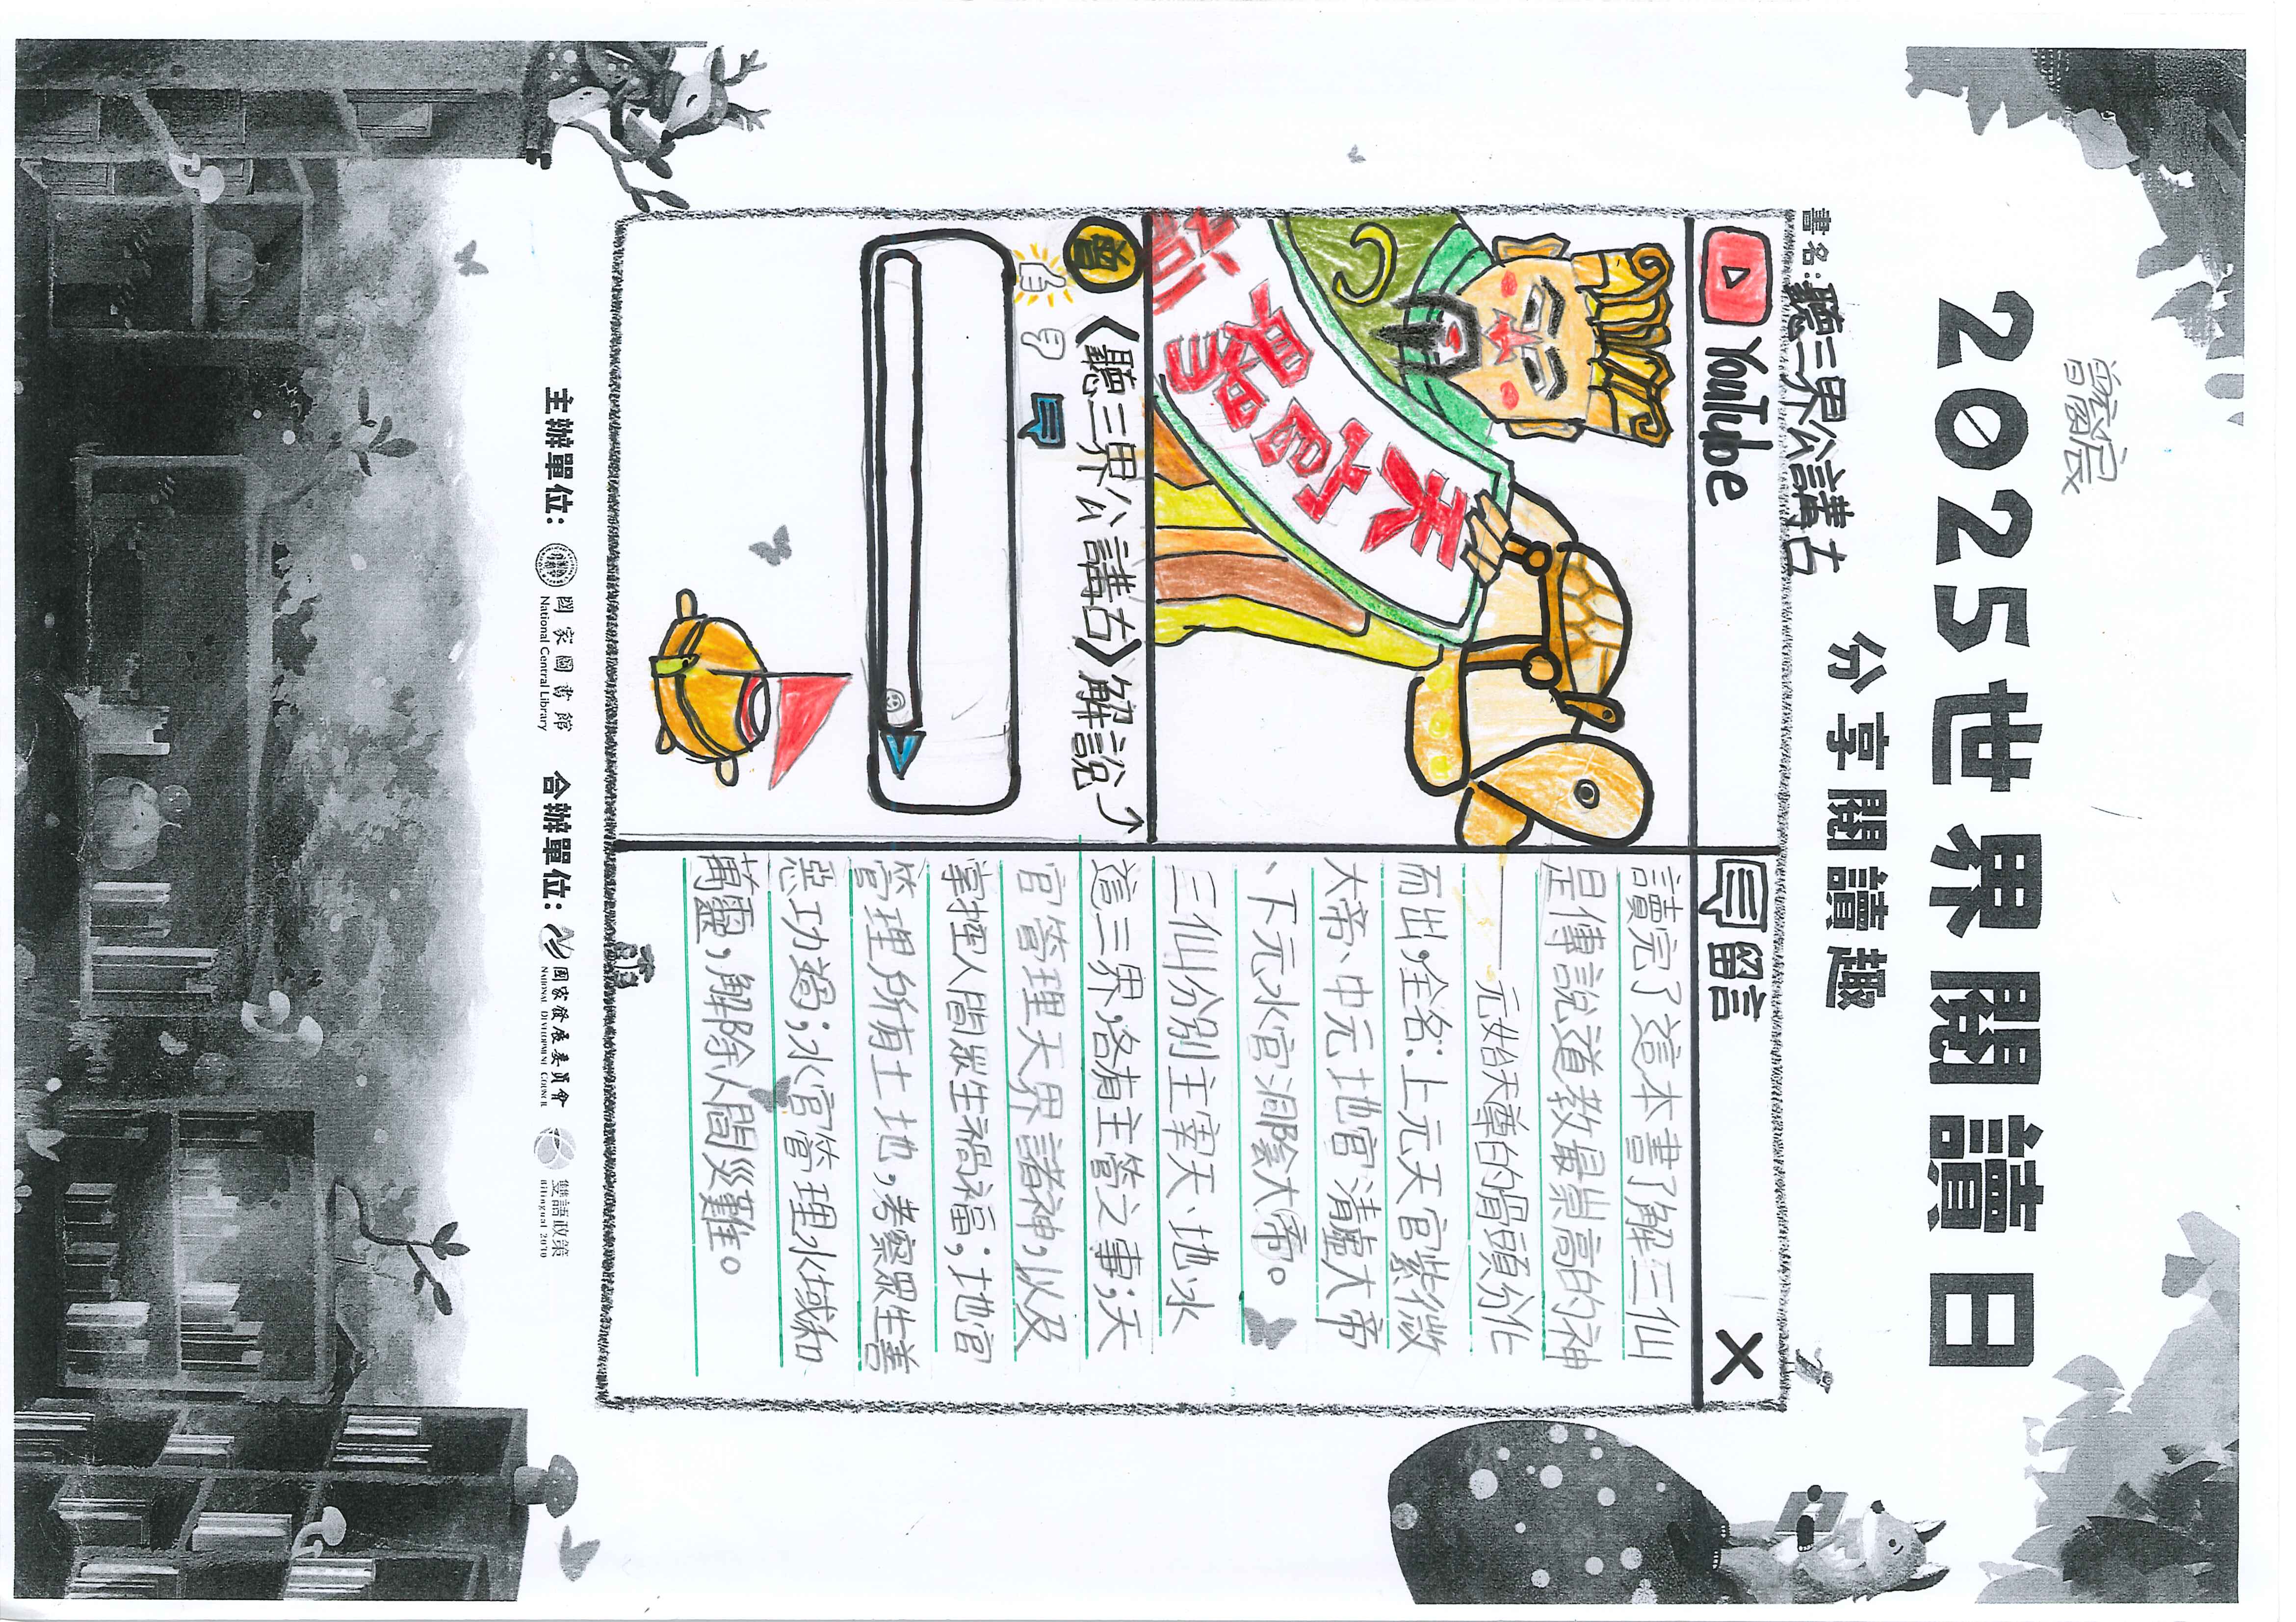 2025世界閱讀日
分享閱讀趣
書名:聽三界公講古
YouTube
天官賜福
曾
《聽三界公講古》解說
留言
X
讀完了這本書了解三仙
是傳說道教最崇高的神
——元始天尊的頭分化
而出,全名:上元天官紫微
大帝、中元地官清虛大帝
、下元水官洞陰大帝。
三仙分別主宰天、地、水
這三界,各有主管之事;天
官管理天界諸神,以及
掌握人間眾生禍福;地官
管理所有土地,考察眾生善
惡功過;水官管理水域和
萬靈,解除人間災難。
主辦單位: 國家圖書館 National Central Library 合辦單位: 國家發展委員會 NATIONAL DEVELOPMENT COUNCIL 雙語政策 Bilingual 2030